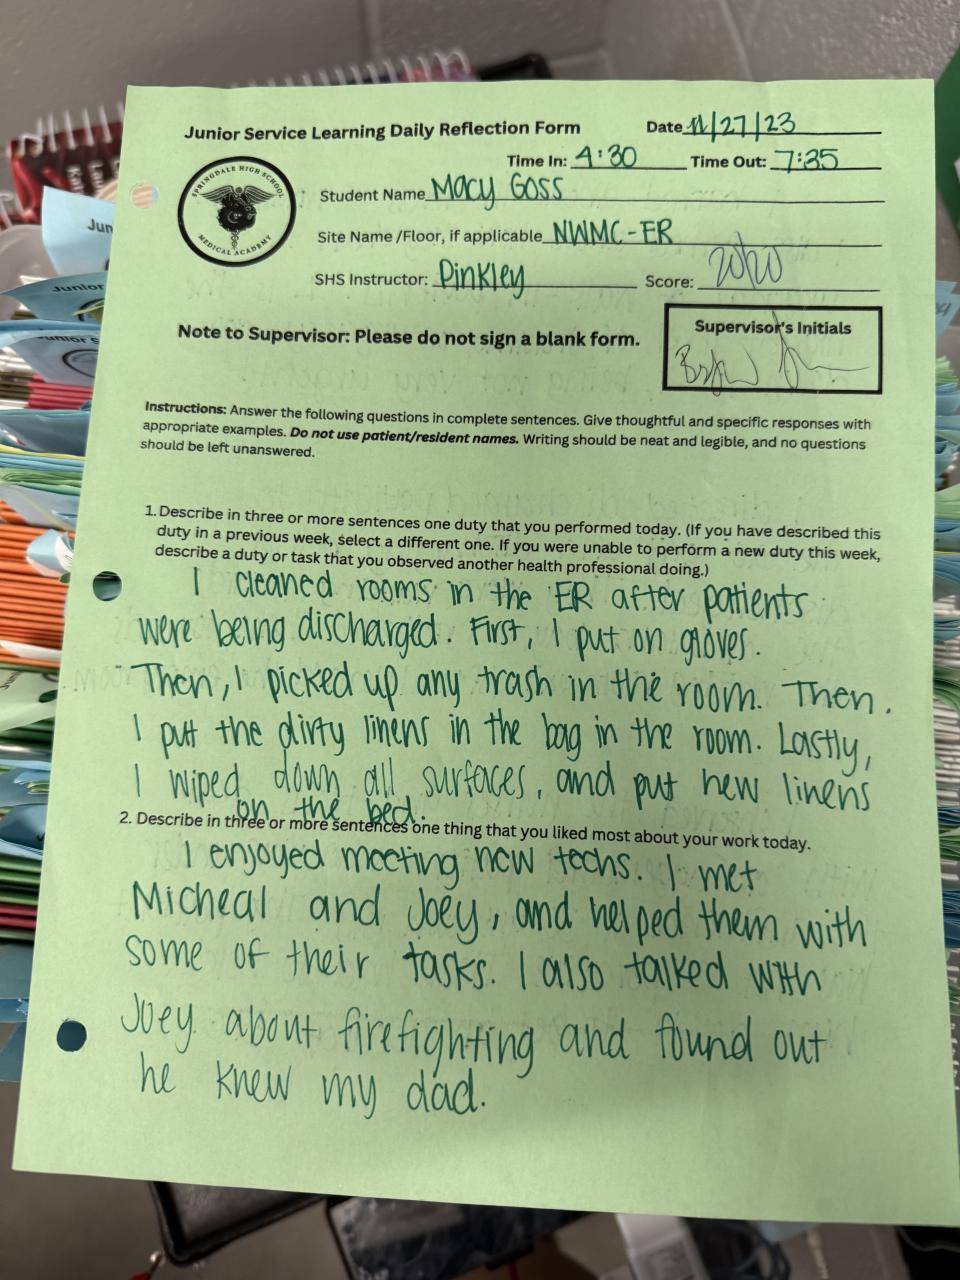 Junior Service Learning Daily Reflection Form Date 11/27/23
Time In: 4:30 Time Out: 7:35
SPRINGDALE HIGH SCHOOL
MEDICAL ACADEMY
Student Name Macy Goss
Site Name /Floor, if applicable NWMC-ER
SHS Instructor: Pinkley Score: 20/20
Note to Supervisor: Please do not sign a blank form.
Supervisor's Initials
Instructions: Answer the following questions in complete sentences. Give thoughtful and specific responses with
appropriate examples. Do not use patient/resident names. Writing should be neat and legible, and no questions
should be left unanswered.
1. Describe in three or more sentences one duty that you performed today. (If you have described this
duty in a previous week, select a different one. If you were unable to perform a new duty this week,
describe a duty or task that you observed another health professional doing.)
I cleaned rooms in the ER after patients
were being discharged. First, I put on gloves.
Then, I picked up any trash in the room. Then.
I put the dirty linens in the bag in the room. Lastly,
I wiped down all surfaces, and put new linens
on the bed.
2. Describe in three or more sentences one thing that you liked most about your work today.
I enjoyed meeting new techs. I met
Micheal and Joey, and helped them with
some of their tasks. I also talked with
Joey about firefighting and found out
he knew my dad.